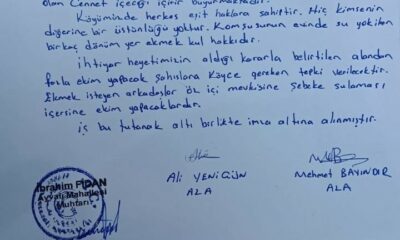 olan Cennet içeceği içinir buyurmaktadır.
Köyümüzde herkes eşit haklara sahiptir. Hiç kimsenin
diğerine bir üstünlüğü yoktur. Komşusunun evinde su yokken
birkaç dönüm yer ekmek kul hakkıdır.
ihtiyar heyetimizin aldığı kararla belirtilen alandan
fazla ekim yapacak şahıslara Köyce gereken tepki verilecektir.
Ekmek isteyen arkadaşlar öz içi mevkisine şebeke sulaması
içersine ekim yapacaklardır.
iş bu tutanak altı birlikte imza altına alınmıştır.
İbrahim FİDAN
Ayvalı Mahallesi
Muhtarı
Ali YENİGÜN
AZA
Mehmet BAYINDIR
AZA